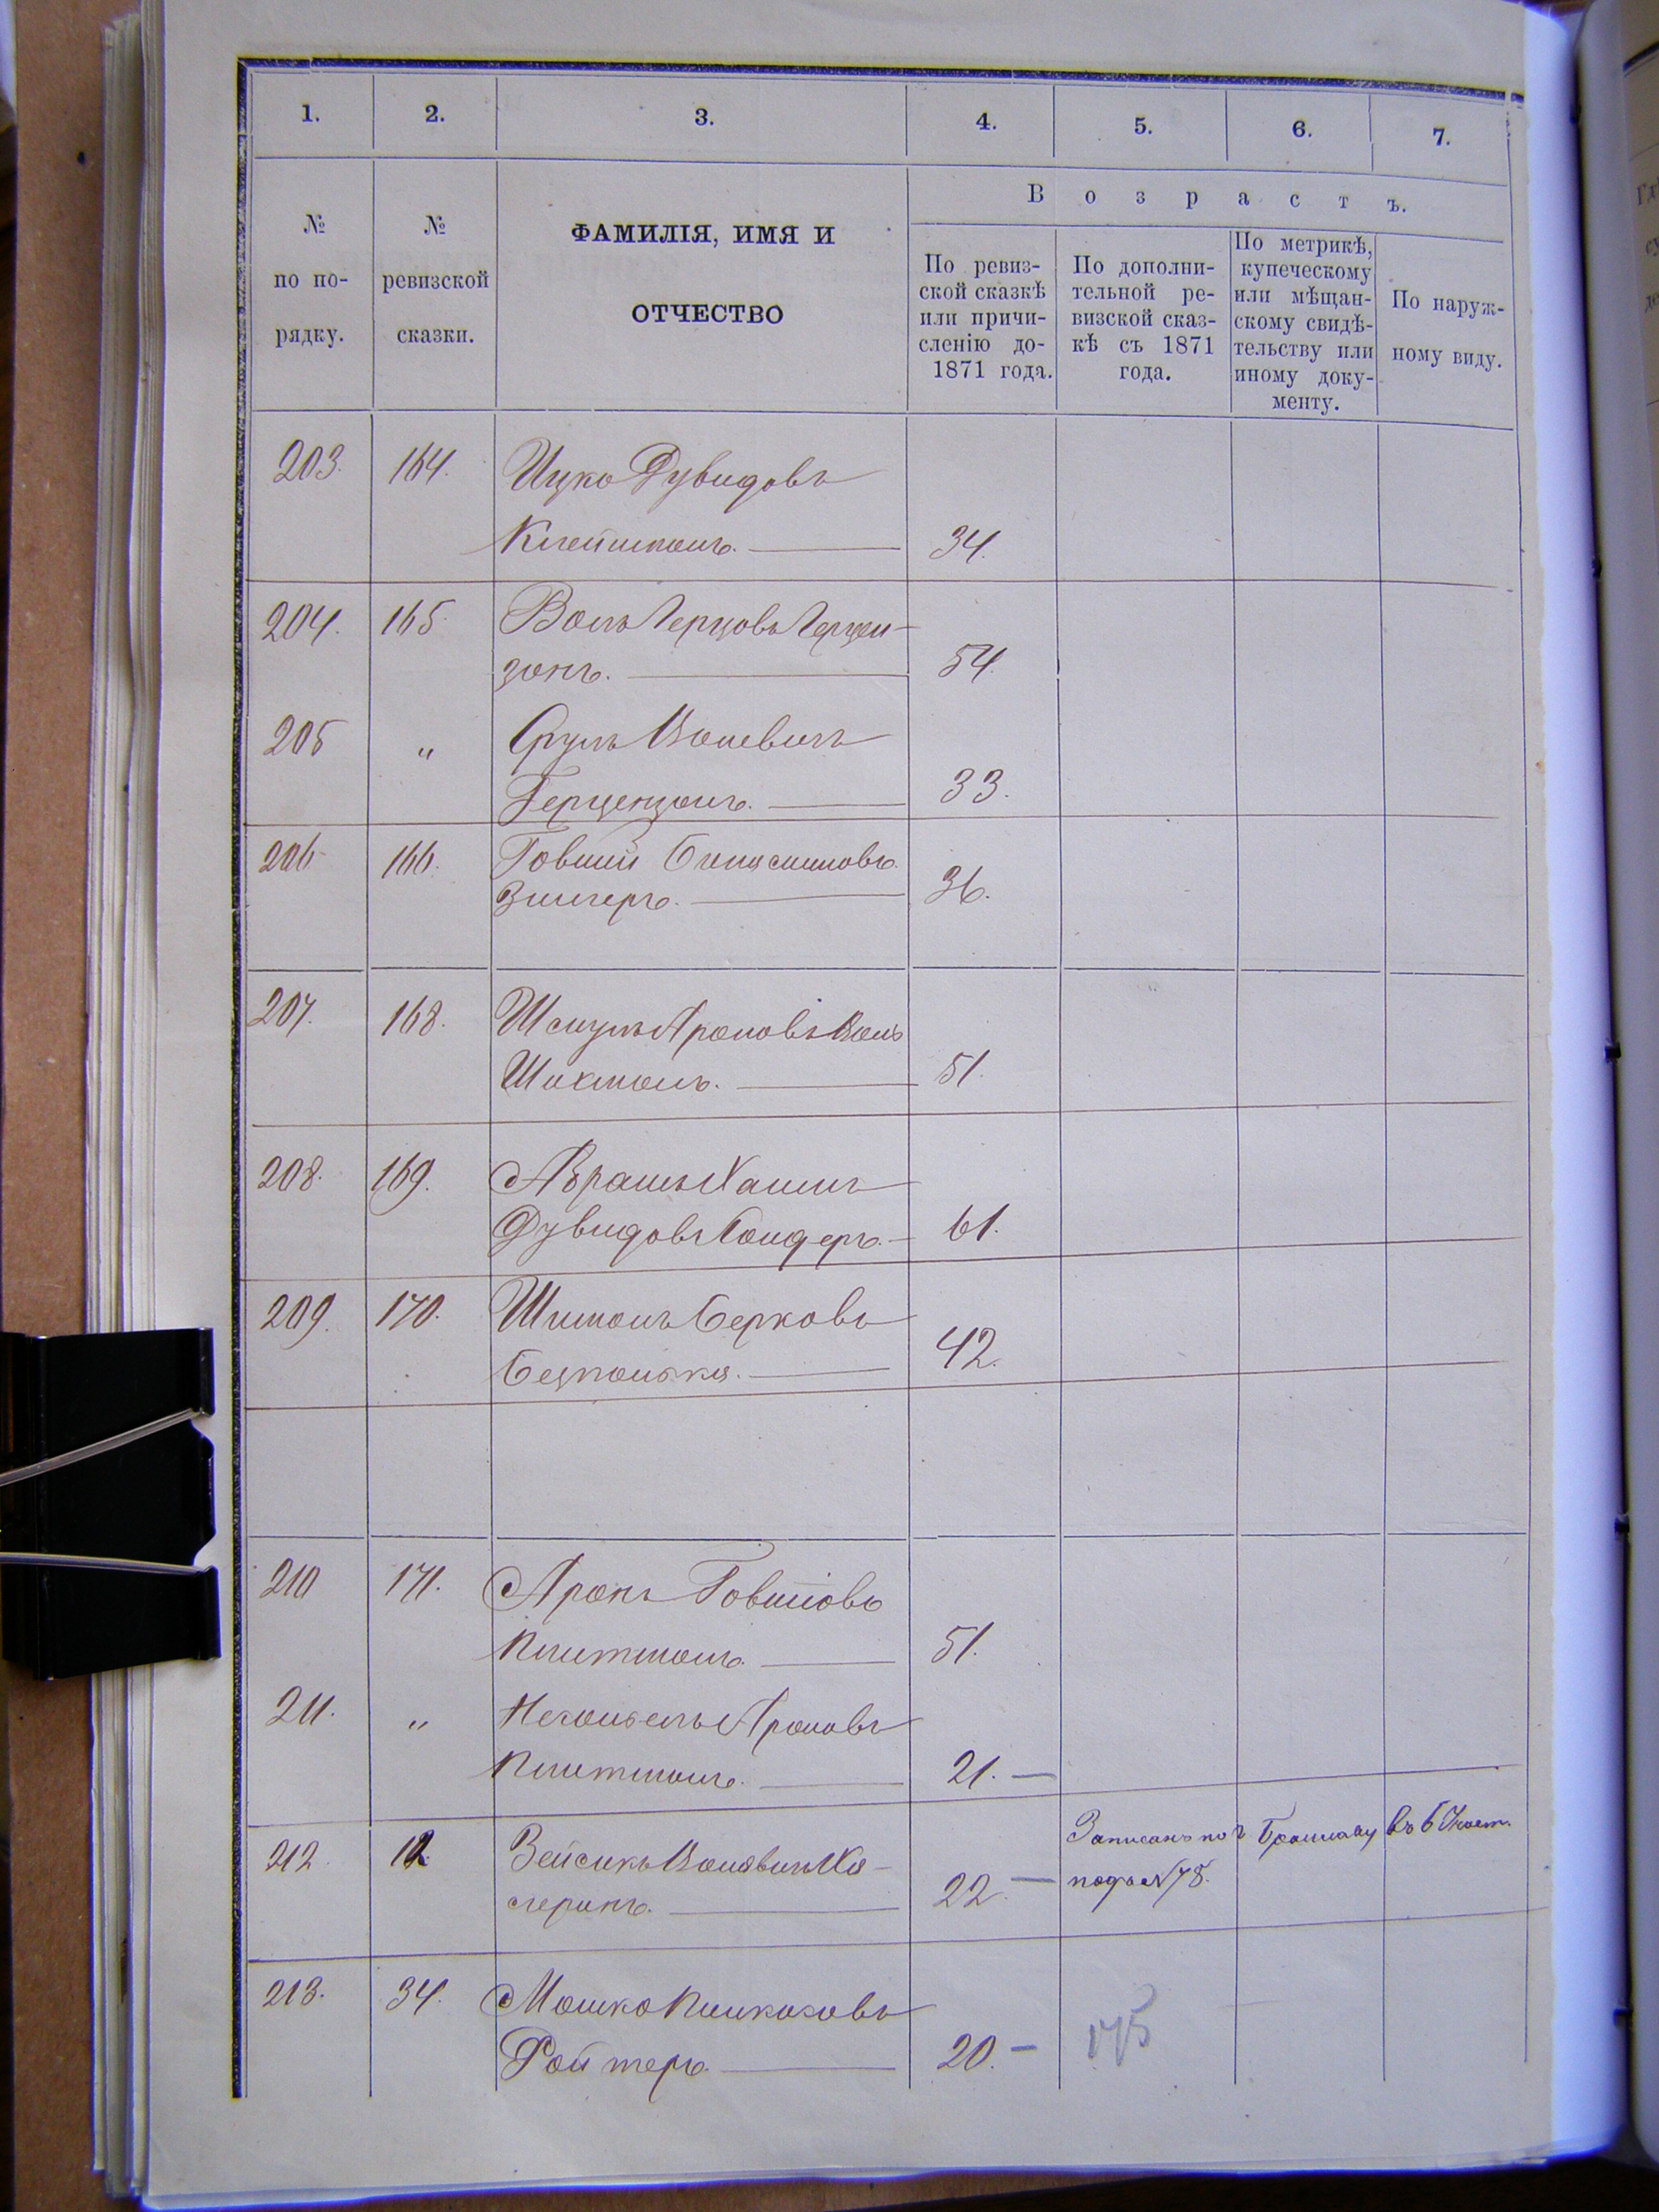 1. 2. 3. 4. 5. 6. 7.
№ по по-рядку.
№ ревизской сказки.
ФАМИЛІЯ, ИМЯ И
ОТЧЕСТВО
Возрастъ.
По ревиз-
ской сказкѣ
или причи-
сленію до-
1871 года.
По дополни-
тельной ре-
визской сказ-
кѣ съ 1871
года.
По метрикѣ,
купеческому
или мѣщан-
скому свидѣ-
тельству или
иному доку-
менту.
По наруж-
ному виду.
203. 164. Ицко Дувидовъ
Клейтманъ. 34.
204. 165. Волъ Герцовъ Герцен-
зонъ. 54.
205 " Сруль Волевичъ
Герцензонъ. 33.
206. 166. Товшій Биньяминовъ
Зингеръ. 36.
207. 168. Шмуль Ароновъ Вол
Шихманъ. 51.
208. 169. Абрамъ Хаимъ
Дувидовъ Кандеръ. 61.
209. 170. Шимонъ Берковъ
42.
210 171. Аронъ Товшіовъ
Плитманъ. 51.
211. " Ароновъ
Плитманъ. 21.
212. 12 Зейсикъ
22.
Записанъ по г. Брацлаву въ 6 Участ.
подъ №78.
213. 34. Мошко Пинкасовъ
Ройтеръ. 20.
175